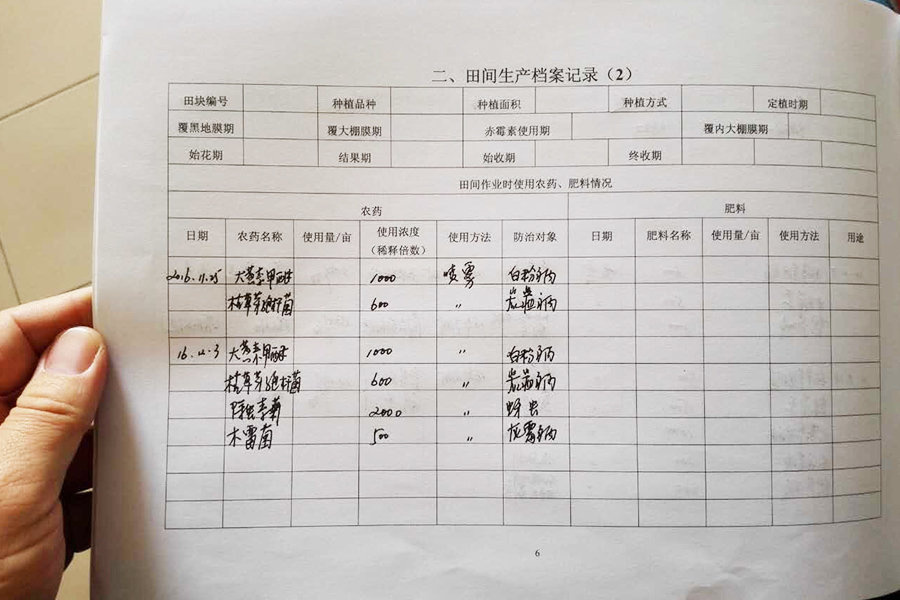 二、田间生产档案记录（2）
田块编号 种植品种 种植面积 种植方式 定植时期
覆黑地膜期 覆大棚膜期 赤霉素使用期 覆内大棚膜期
始花期 结果期 始收期 终收期
田间作业时使用农药、肥料情况
农药 肥料
日期 农药名称 使用量/亩 使用浓度（稀释倍数） 使用方法 防治对象 日期 肥料名称 使用量/亩 使用方法 用途
2016.11.25 大黄素甲醚 1000 喷雾 白粉病
枯草芽孢杆菌 600 〃 炭疽病
大黄素甲醚 1000 〃 白粉病
枯草芽孢杆菌 600 〃 炭疽病
除虫菊 2000 〃 蚜虫
木霉菌 500 〃 灰霉病
6